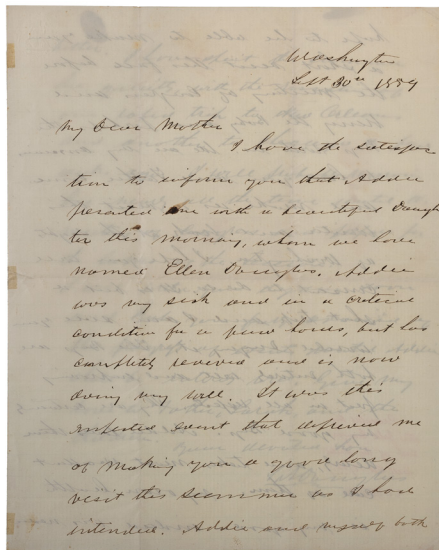 Washington
Sept 30th 1859
My Dear Mother
I have the satisfac
tion to inform you that Addie
presented me with a beautiful Daugh
ter this morning, whom we have
named Ellen Douglas. Addie
was very sick and in a critical
condition for a few hours, but has
completely revived and is now
doing very well. It was this
expected event that deprived me
of making you a good long
visit this summer as I had
intended. Addie and myself both